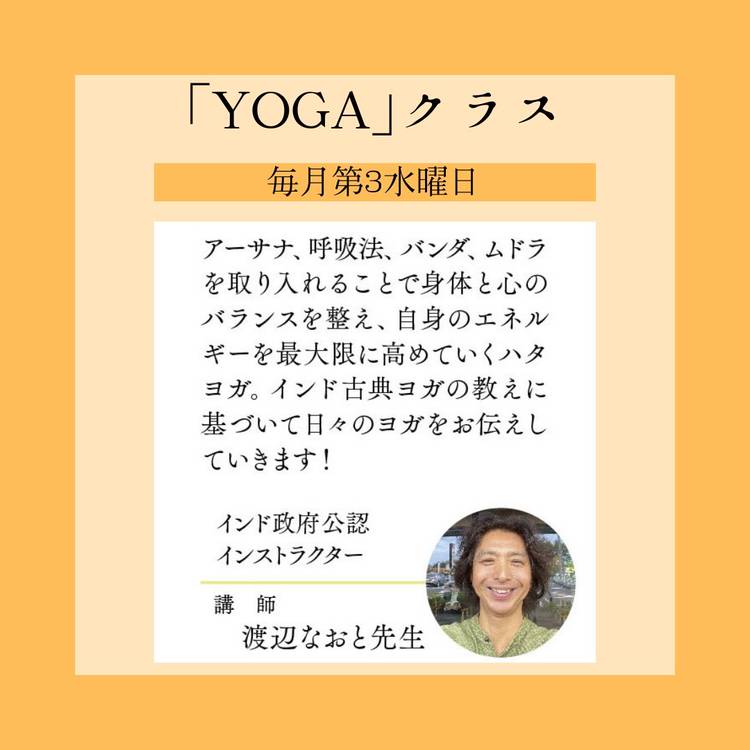 「YOGA」クラス
毎月第3水曜日
アーサナ、呼吸法、バンダ、ムドラ
を取り入れることで身体と心の
バランスを整え、自身のエネル
ギーを最大限に高めていくハタ
ヨガ。インド古典ヨガの教えに
基づいて日々のヨガをお伝えし
ていきます！
インド政府公認
インストラクター
講　師
渡辺なおと先生